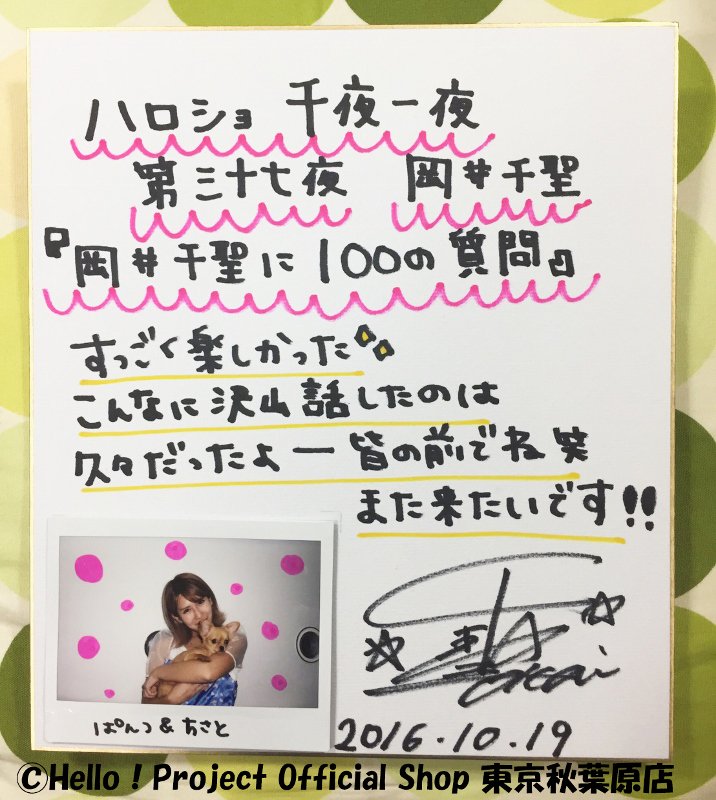 ハロショ 千夜一夜
第三十七夜 岡井千聖
『岡井千聖に100の質問』
すっごく楽しかった
こんなに沢山話したのは
久々だったよー皆の前でね笑
また来たいです!!
ぱんつ&ちさと
2016.10.19
©Hello ! Project Official Shop 東京秋葉原店